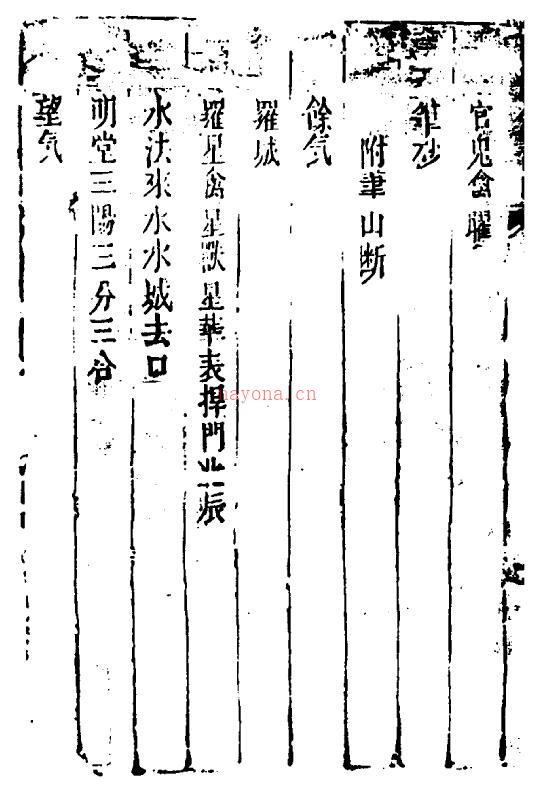 官鬼禽曜
雜砂
附筆山断
餘气
羅城
羅星禽星獸星華表捍門北辰
水法來水水城去口
明堂三陽三分三合
望气
nayona.cn